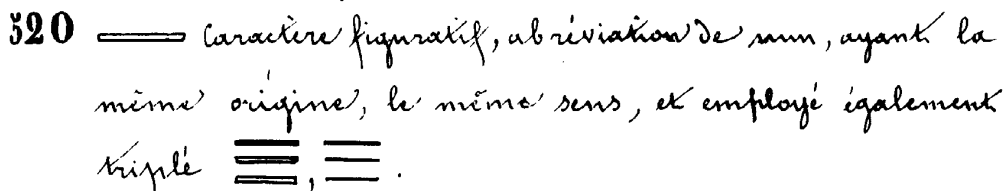 520 Caractère figuratif, abréviation de 𓈖, ayant la
même origine, le même sens, et employé également
triplé , .